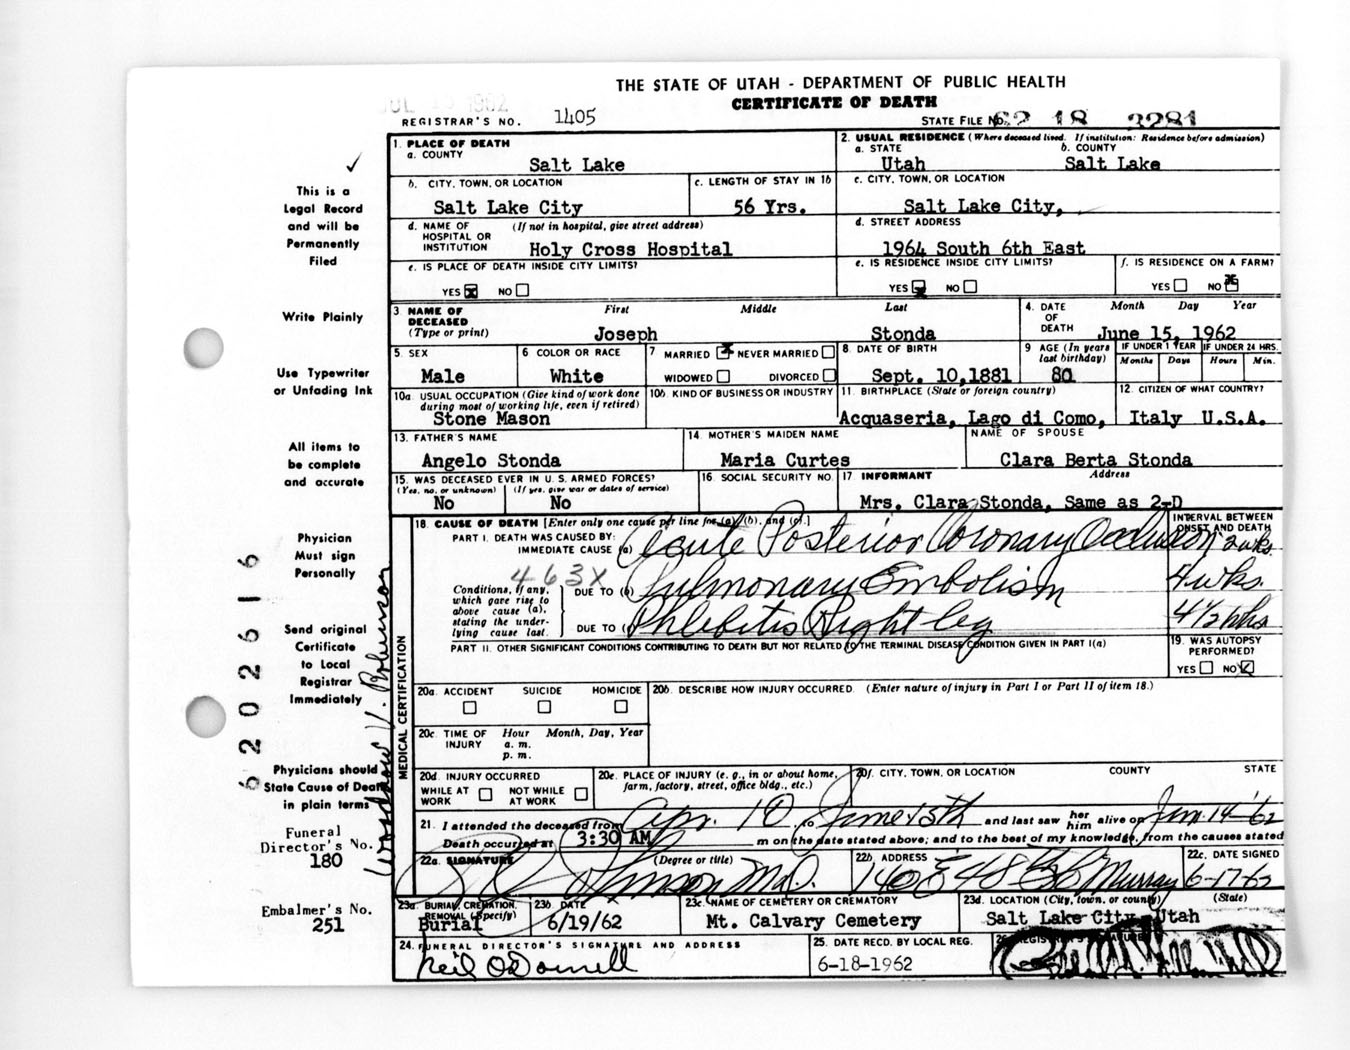 THE STATE OF UTAH - DEPARTMENT OF PUBLIC HEALTH
CERTIFICATE OF DEATH
REGISTRAR'S NO. 1405
STATE FILE NO. 62 18 3281
1. PLACE OF DEATH
a. COUNTY
Salt Lake
2. USUAL RESIDENCE (Where deceased lived. If institution: Residence before admission)
a. STATE b. COUNTY
Utah Salt Lake
b. CITY, TOWN, OR LOCATION
Salt Lake City
c. LENGTH OF STAY IN 1b
56 Yrs.
c. CITY, TOWN, OR LOCATION
Salt Lake City,
d. NAME OF (If not in hospital, give street address)
HOSPITAL OR
INSTITUTION Holy Cross Hospital
d. STREET ADDRESS
1964 South 6th East
e. IS PLACE OF DEATH INSIDE CITY LIMITS?
YES x NO
e. IS RESIDENCE INSIDE CITY LIMITS?
YES x NO
f. IS RESIDENCE ON A FARM?
YES NO x
3. NAME OF DECEASED
(Type or print)
First Middle Last
Joseph Stonda
4. DATE OF DEATH
Month Day Year
June 15, 1962
5. SEX
Male
6 COLOR OR RACE
White
7 MARRIED x NEVER MARRIED
WIDOWED DIVORCED
8. DATE OF BIRTH
Sept. 10,1881
9 AGE (In years last birthday)
80
IF UNDER 1 YEAR
Months Days
IF UNDER 24 HRS.
Hours Min.
10a. USUAL OCCUPATION (Give kind of work done
during most of working life, even if retired)
Stone Mason
10b. KIND OF BUSINESS OR INDUSTRY
11. BIRTHPLACE (State or foreign country)
Acquaseria, Lago di Como, Italy
12. CITIZEN OF WHAT COUNTRY?
U.S.A.
13. FATHER'S NAME
Angelo Stonda
14. MOTHER'S MAIDEN NAME
Maria Curtes
NAME OF SPOUSE
Clara Berta Stonda
15. WAS DECEASED EVER IN U. S. ARMED FORCES?
(Yes, no, or unknown) (If yes, give war or dates of service)
No No
16. SOCIAL SECURITY NO.
17. INFORMANT Address
Mrs. Clara Stonda, Same as 2-D
MEDICAL CERTIFICATION
18. CAUSE OF DEATH [Enter only one cause per line for (a), (b), and (c).]
INTERVAL BETWEEN
ONSET AND DEATH
PART I. DEATH WAS CAUSED BY:
IMMEDIATE CAUSE (a) Acute Posterior Coronary Occlusion 2 wks.
463X
Conditions, if any,
which gave rise to
above cause (a),
stating the under-
lying cause last.
DUE TO (b) Pulmonary Embolism 4 wks.
DUE TO (c) Phlebitis Right leg 4½ wks
PART II. OTHER SIGNIFICANT CONDITIONS CONTRIBUTING TO DEATH BUT NOT RELATED TO THE TERMINAL DISEASE CONDITION GIVEN IN PART I(a)
19. WAS AUTOPSY
PERFORMED?
YES NO
20a. ACCIDENT SUICIDE HOMICIDE
20b. DESCRIBE HOW INJURY OCCURRED. (Enter nature of injury in Part I or Part II of item 18.)
20c. TIME OF INJURY
Hour Month, Day, Year
a. m.
p. m.
20d. INJURY OCCURRED
WHILE AT WORK NOT WHILE AT WORK
20e. PLACE OF INJURY (e. g., in or about home,
farm, factory, street, office bldg., etc.)
20f. CITY, TOWN, OR LOCATION COUNTY STATE
21. I attended the deceased from Apr. 10 to June 15th and last saw her him alive on Jun 14 '62
Death occurred at 3:30 AM m on the date stated above; and to the best of my knowledge, from the causes stated
22a. SIGNATURE (Degree or title)
M.D.
22b. ADDRESS
140 E 48 Murray
22c. DATE SIGNED
6-17-62
23a. BURIAL, CREMATION,
REMOVAL (Specify)
Burial
23b. DATE
6/19/62
23c. NAME OF CEMETERY OR CREMATORY
Mt. Calvary Cemetery
23d. LOCATION (City, town, or county) (State)
Salt Lake City, Utah
24. FUNERAL DIRECTOR'S SIGNATURE AND ADDRESS
Neil O'Donnell
25. DATE RECD. BY LOCAL REG.
6-18-1962
26. REGISTRAR'S SIGNATURE
This is a
Legal Record
and will be
Permanently
Filed
Write Plainly
Use Typewriter
or Unfading Ink
All items to
be complete
and accurate
Physician
Must sign
Personally
Send original
Certificate
to Local
Registrar
Immediately
Physicians should
State Cause of Death
in plain terms
Funeral
Director's No.
180
Embalmer's No.
251
6202616
Woodrow V. Robinson